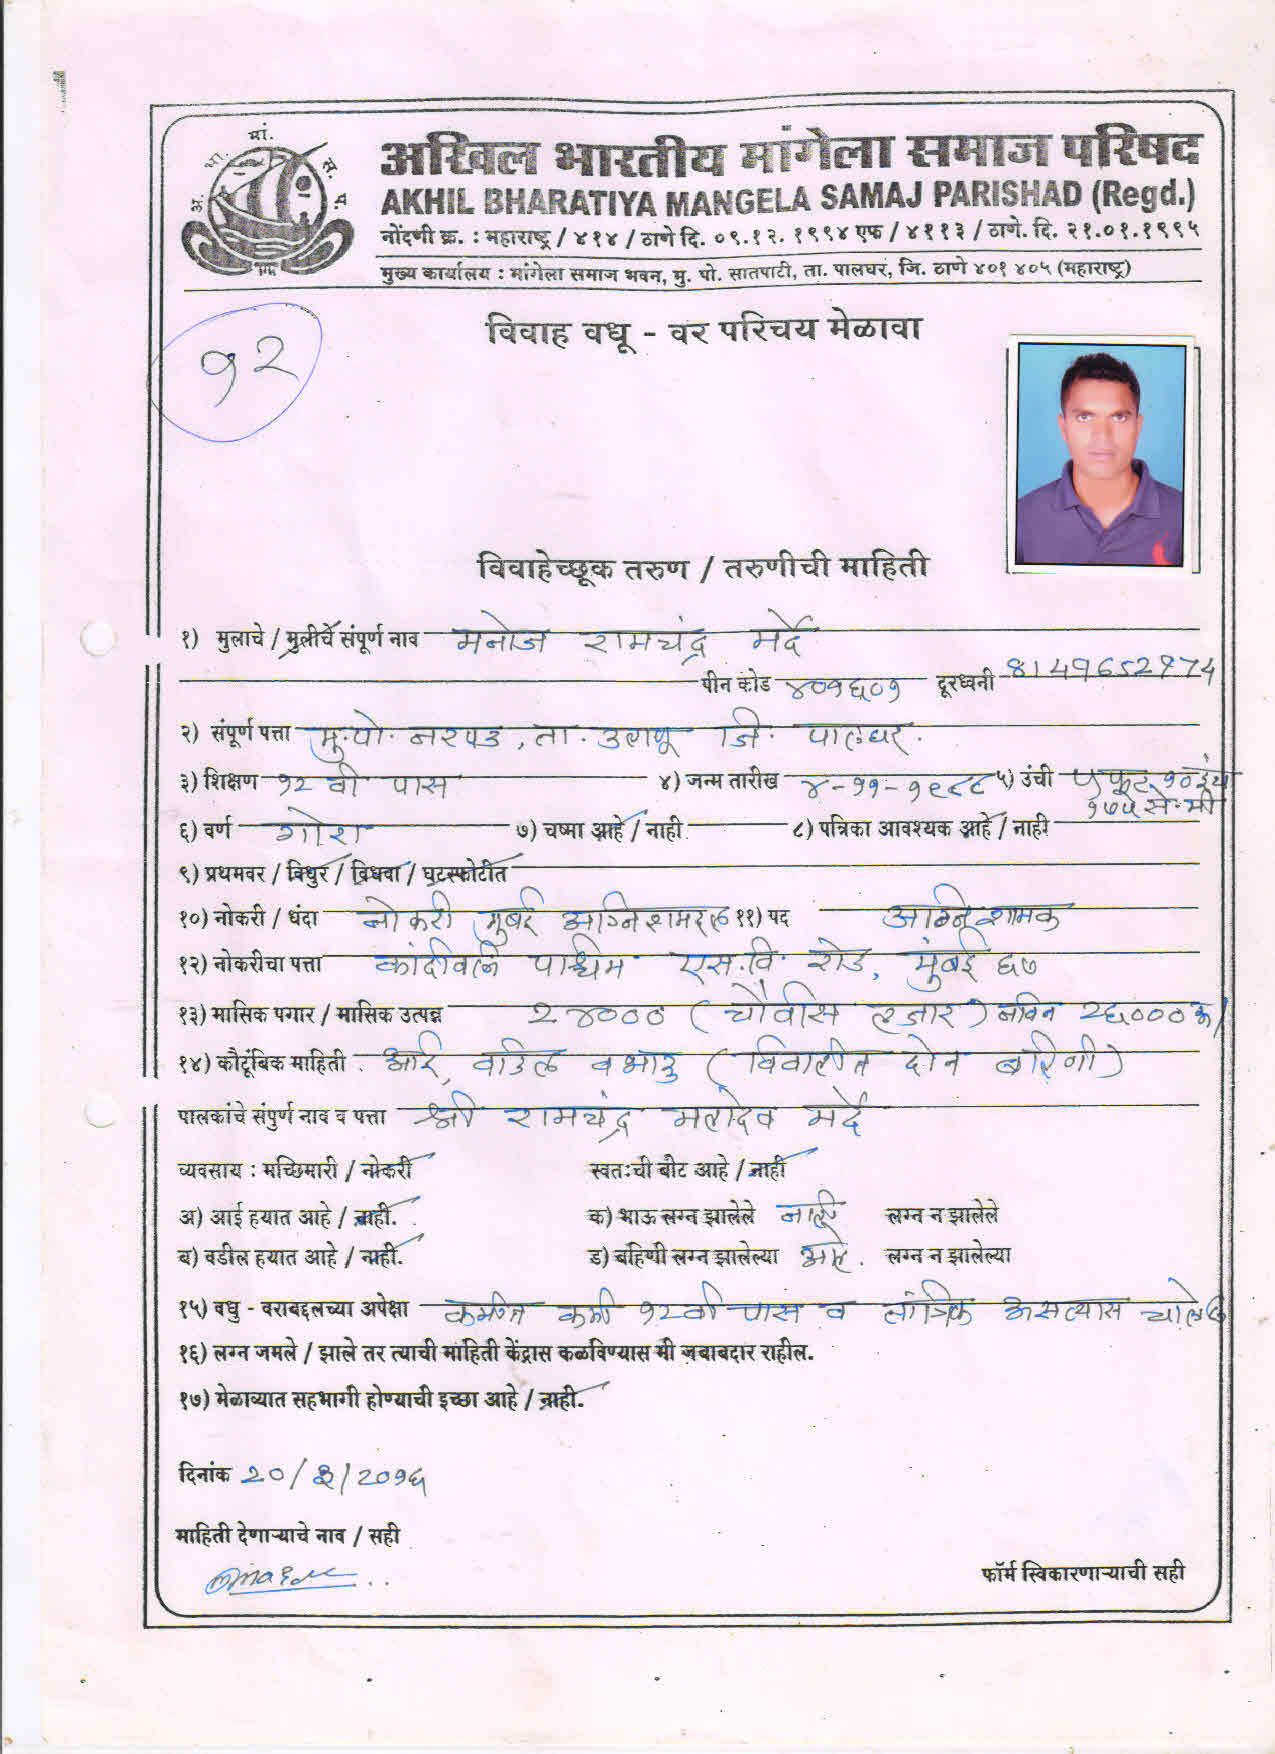 अ. भा. मां. स. प.
अखिल भारतीय मांगेला समाज परिषद
AKHIL BHARATIYA MANGELA SAMAJ PARISHAD (Regd.)
नोंदणी क्र. : महाराष्ट्र / ४१४ / ठाणे दि. ०९.१२. १९९४ एफ / ४११३ / ठाणे. दि. २१.०१.१९९५
मुख्य कार्यालय : मांगेला समाज भवन, मु. पो. सातपाटी, ता. पालघर, जि. ठाणे ४०१ ४०५ (महाराष्ट्र)
१२
विवाह वधू - वर परिचय मेळावा
विवाहेच्छूक तरुण / तरुणीची माहिती
१) मुलाचे / मुलीचे संपूर्ण नाव मनोज रामचंद्र मर्दे
पीन कोड ४०१६०१ दूरध्वनी 8149652974
२) संपूर्ण पत्ता मु.पो. नरपड, ता. डहाणू जि. पालघर.
३) शिक्षण १२ वी पास ४) जन्म तारीख ४-११-१९८८ ५) उंची ५ फूट १० इंच
१७५ से.मी
६) वर्ण गोरा ७) चष्मा आहे / नाही ८) पत्रिका आवश्यक आहे / नाही
९) प्रथमवर / विधुर / विधवा / घटस्फोटीत
१०) नोकरी / धंदा नोकरी मुंबई अग्निशामर ११) पद अग्निशामक
१२) नोकरीचा पत्ता कांदीवली पश्चिम एस.वि. रोड, मुंबई ६७
१३) मासिक पगार / मासिक उत्पन्न २४००० (चौवीस हजार) नविन २६०००
१४) कौटूंबिक माहिती आई, वडिल व भाऊ (विवाहीत दोन बहिणी)
पालकांचे संपुर्ण नाव व पत्ता श्री रामचंद्र महादेव मर्दे
व्यवसाय : मच्छिमारी / नोकरी स्वतःची बोट आहे / नाही
अ) आई हयात आहे / नाही. क) भाऊ लग्न झालेले नाही लग्न न झालेले
ब) वडील हयात आहे / नाही. ड) बहिणी लग्न झालेल्या आहे. लग्न न झालेल्या
१५) वधु - वराबद्दलच्या अपेक्षा कमीत कमी १२वी पास व तांत्रिक असल्यास चालेल
१६) लग्न जमले / झाले तर त्याची माहिती केंद्रास कळविण्यास मी जबाबदार राहील.
१७) मेळाव्यात सहभागी होण्याची इच्छा आहे / नाही.
दिनांक २०/३/२०१६
माहिती देणाऱ्याचे नाव / सही
फॉर्म स्विकारणाऱ्याची सही